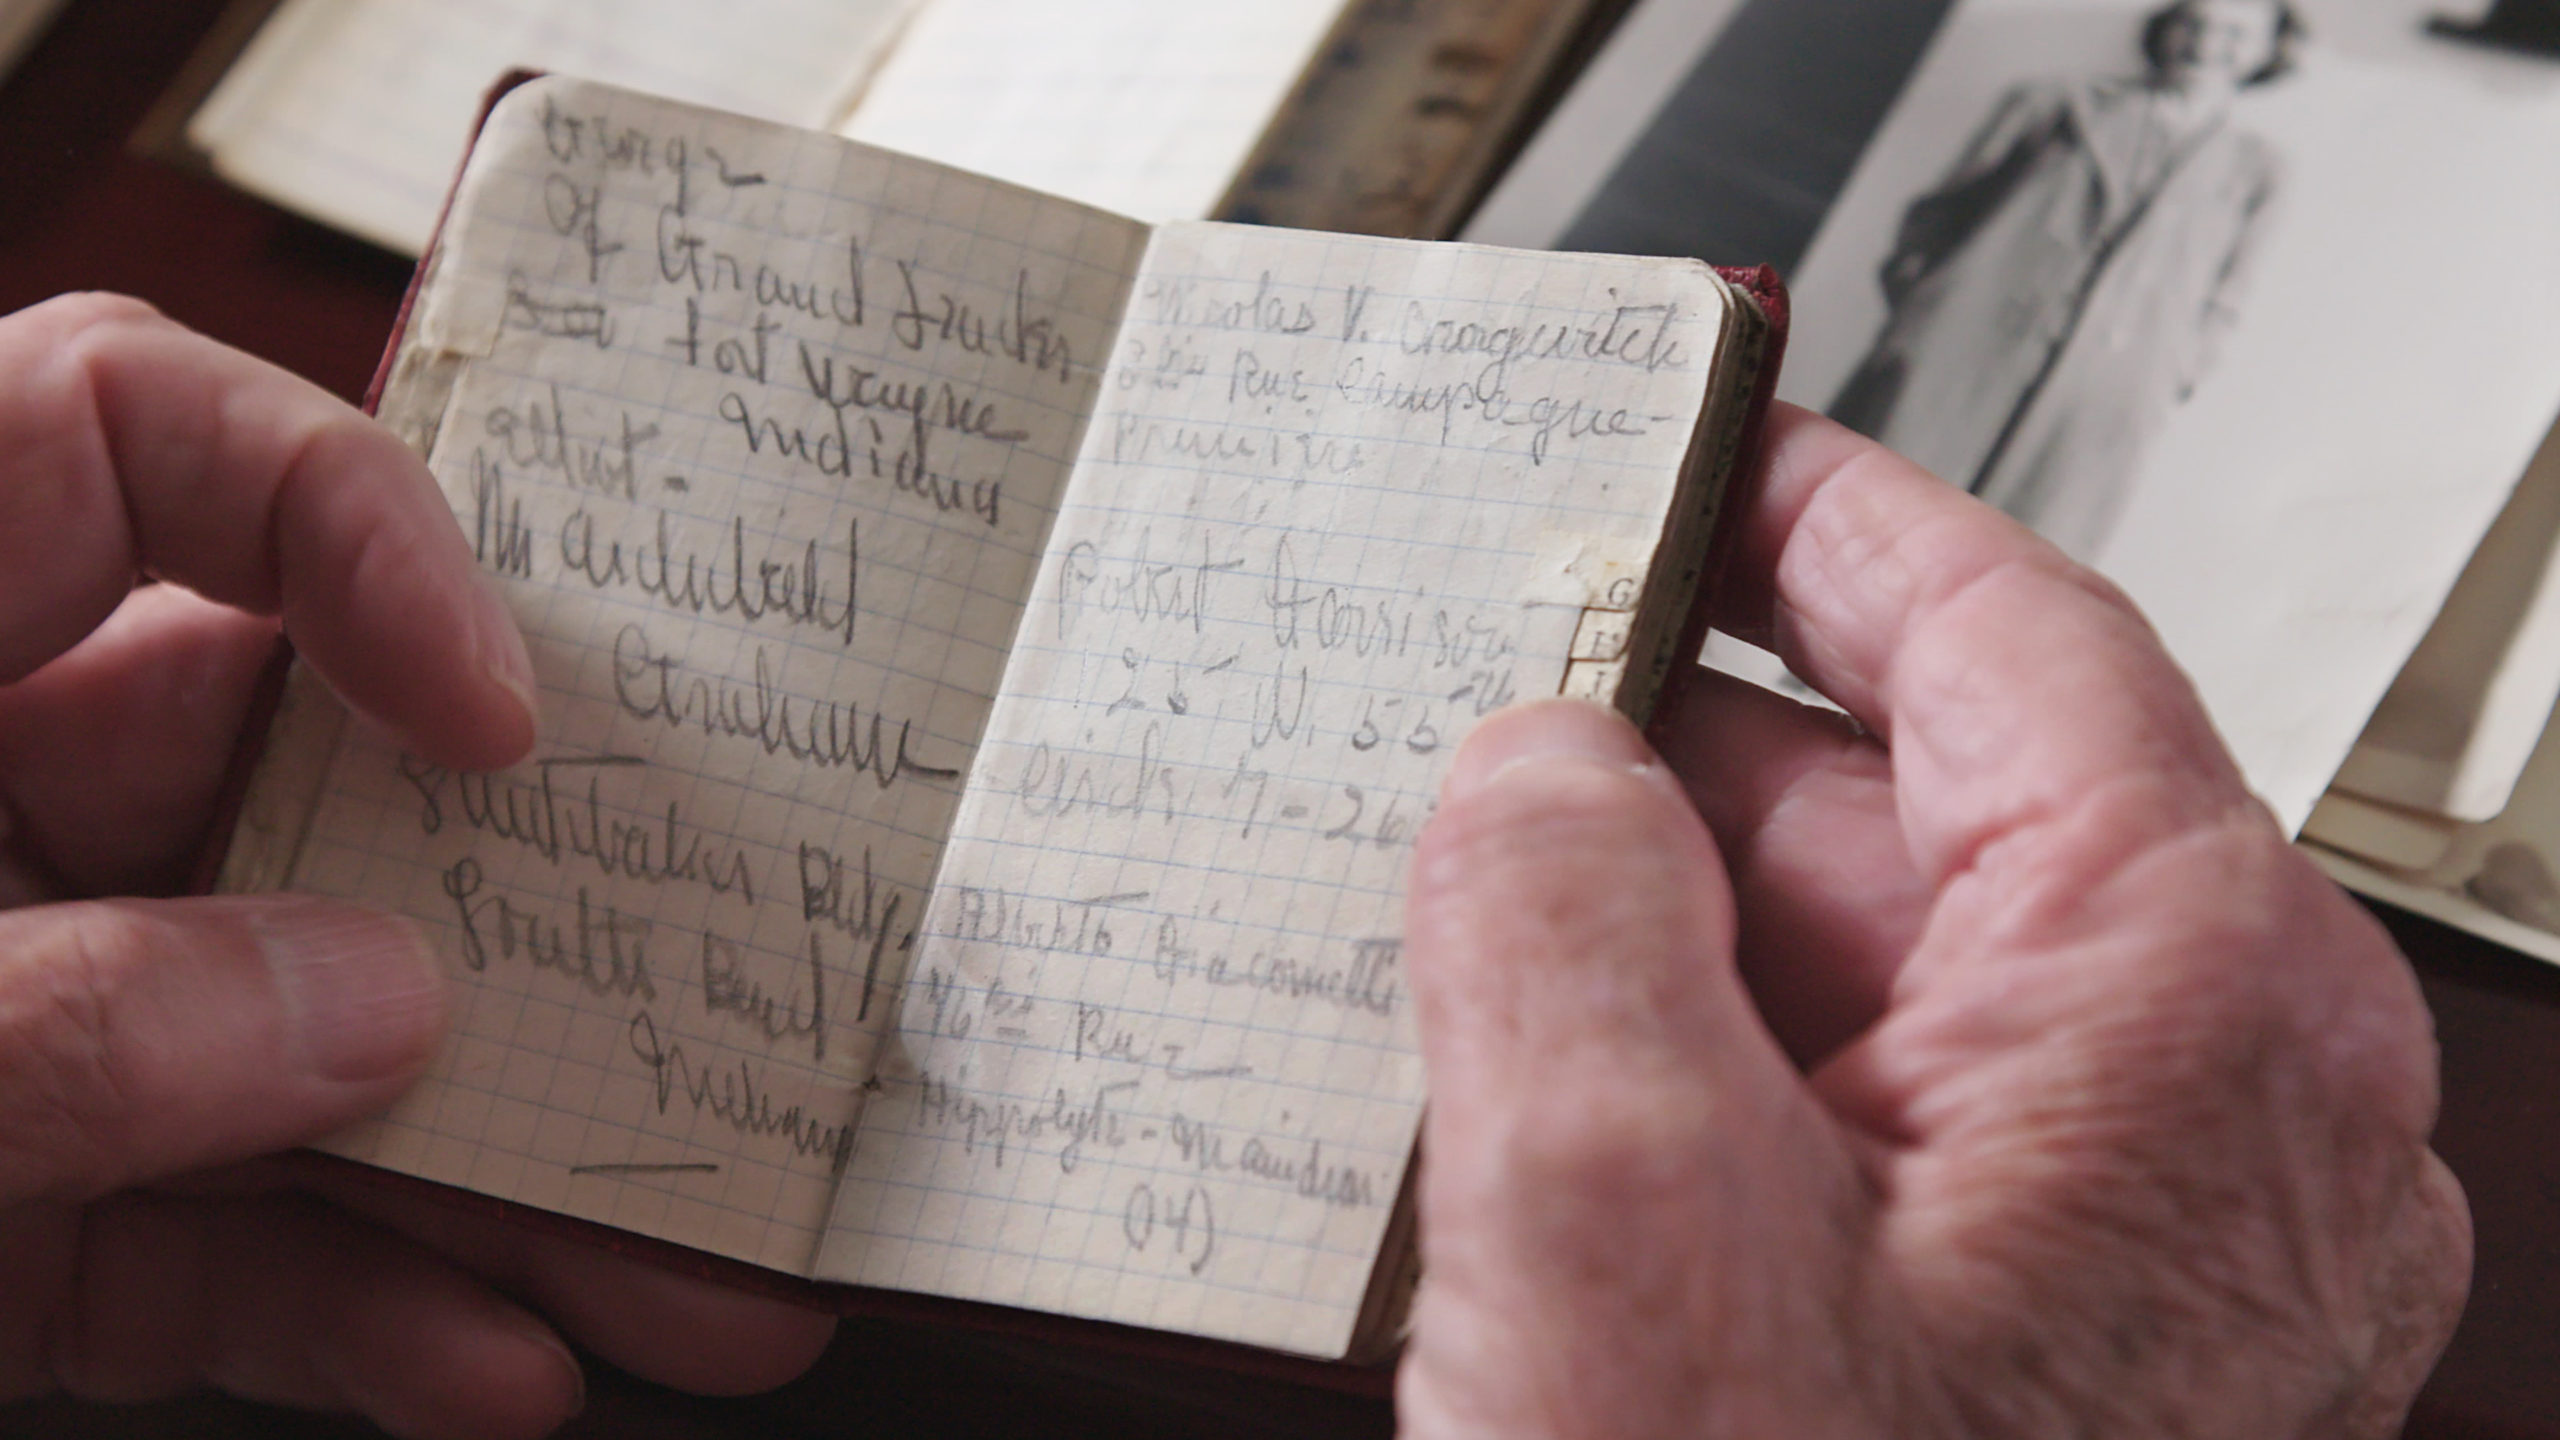 George
Of Grand Trucks
Fort Wayne
Indiana
attent -
Mr Archibald
Graham
Studebaker Bldg.
South Bend /
Indiana
Nicolas V.
Rue Campagne-
Première
Robert Harrison
125 W. 55
Circle 7-26
Alberto Giacometti
46 bis Rue
Hippolyte-Maindron
(14)
G
H
I